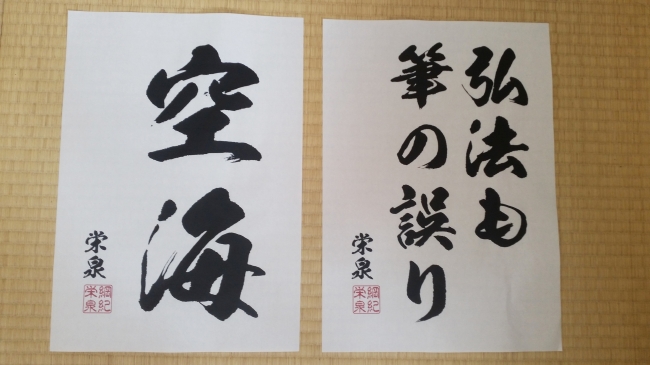 弘法も
筆の誤り
栄泉
綱紀
栄泉
空海
栄泉
綱紀
栄泉